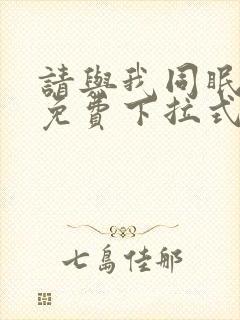 請與我同眠
免費下拉式
七島佳那